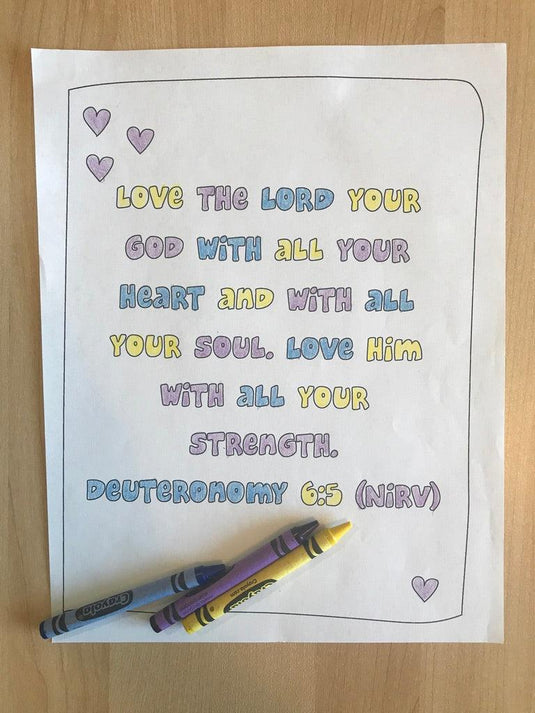 LOVE THE LORD YOUR
GOD WITH ALL YOUR
HEART AND WITH ALL
YOUR SOUL. LOVE HIM
WITH ALL YOUR
STRENGTH.
DEUTERONOMY 6:5 (NIRV)
Crayola
Crayola.com